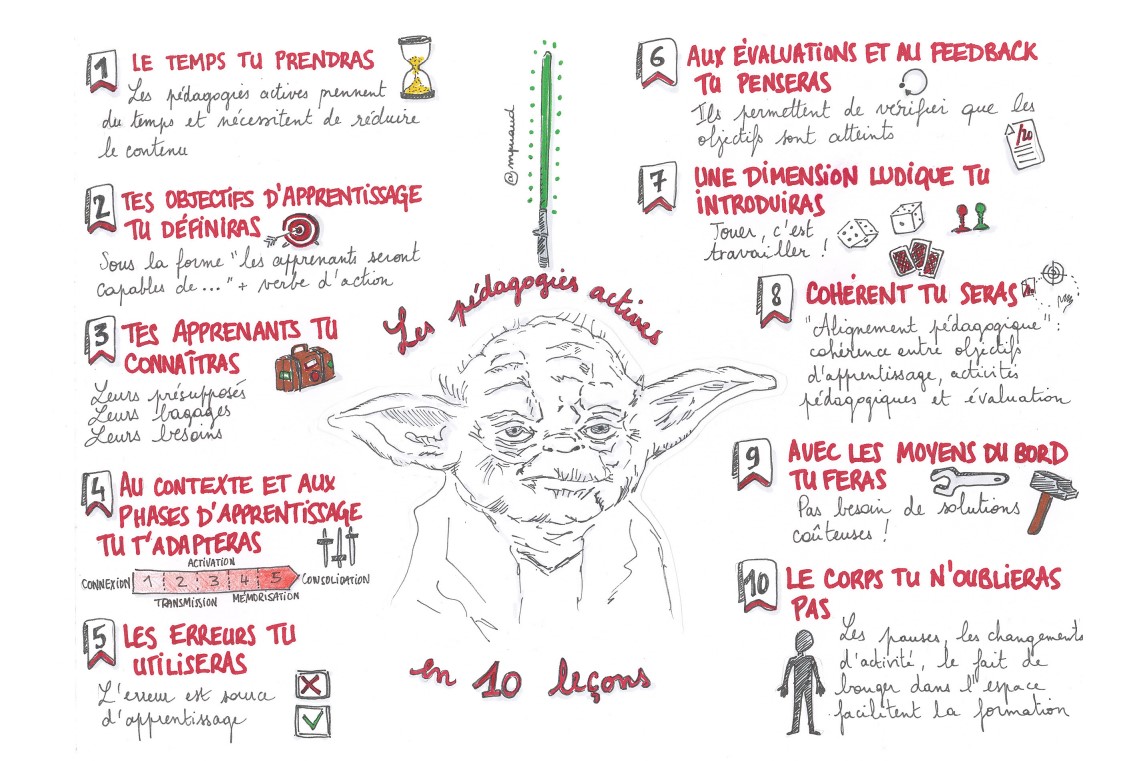 1 LE TEMPS TU PRENDRAS
Les pédagogies actives prennent
du temps et nécessitent de réduire
le contenu
2 TES OBJECTIFS D'APPRENTISSAGE
TU DÉFINIRAS
Sous la forme "les apprenants seront
capables de ..." + verbe d'action
3 TES APPRENANTS TU
CONNAÎTRAS
Leurs présupposés
Leurs bagages
Leurs besoins
4 AU CONTEXTE ET AUX
PHASES D'APPRENTISSAGE
TU T'ADAPTERAS
ACTIVATION
CONNEXION 1 2 3 4 5 CONSOLIDATION
TRANSMISSION MÉMORISATION
5 LES ERREURS TU
UTILISERAS
L'erreur est source
d'apprentissage
@mpuaud
Les pédagogies actives
en 10 leçons
6 AUX ÉVALUATIONS ET AU FEEDBACK
TU PENSERAS
Ils permettent de vérifier que les
objectifs sont atteints
/20
7 UNE DIMENSION LUDIQUE TU
INTRODUIRAS
Jouer, c'est
travailler !
8 COHÉRENT TU SERAS
"Alignement pédagogique" :
cohérence entre objectifs
d'apprentissage, activités
pédagogiques et évaluation
9 AVEC LES MOYENS DU BORD
TU FERAS
Pas besoin de solutions
coûteuses !
10 LE CORPS TU N'OUBLIERAS
PAS
Les pauses, les changements
d'activité, le fait de
bouger dans l'espace
facilitent la formation